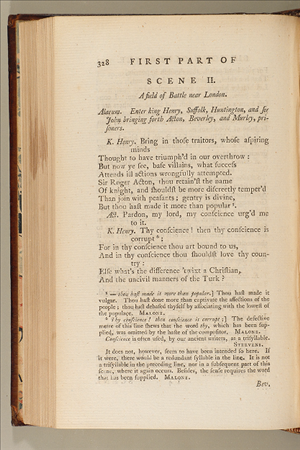 328 FIRST PART OF
SCENE II.
A field of Battle near London.
Alarum. Enter king Henry, Suffolk, Huntington, and sir
John bringing forth Acton, Beverley, and Murley, pri-
soners.
K. Henry. Bring in those traitors, whose aspiring
minds
Thought to have triumph'd in our overthrow:
But now ye see, base villains, what success
Attends ill actions wrongfully attempted.
Sir Roger Acton, thou retain'st the name
Of knight, and shouldst be more discreetly temper'd
Than join with peasants; gentry is divine,
But thou hast made it more than popular ¹.
Act. Pardon, my lord, my conscience urg'd me
to it.
K. Henry. Thy conscience! then thy conscience is
corrupt ²;
For in thy conscience thou art bound to us,
And in thy conscience thou shouldst love thy coun-
try:
Else what's the difference 'twixt a Christian,
And the uncivil manners of the Turk?
¹ — thou hast made it more than popular.] Thou hast made it
vulgar. Thou hast done more than expressive the
thou hast debased thyself by associating with the lowest of
the populace. MALONE.
² Thy conscience! thou conscience is corrupt;] The defective
metre of this line shews that the word thy, which has been sup-
plied, was omitted by the haste of the compositor. MALONE.
Conscience is often used, by our ancient writers, as a trisyllable.
STEEVENS.
It does not, however, seem to have been intended so here. If
it were, there would be a redundant syllable in the line. It is not
a trisyllable in the preceding line, nor in a subsequent part of this
scene, where it again occurs. Besides, the sense requires the word
that has been supplied. MALONE.
Bev.